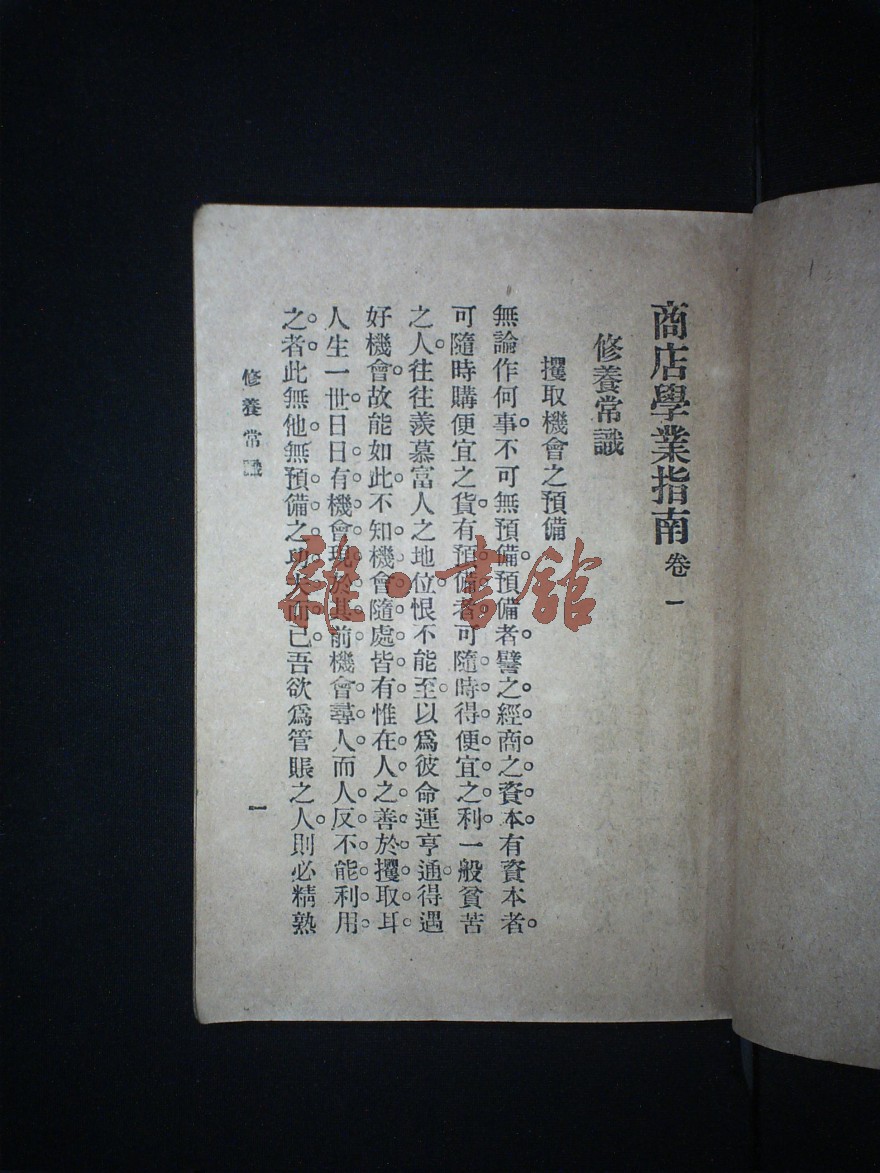 商店學業指南 卷一
修養常識
攫取機會之預備
無論作何事。不可無預備。預備者。譬之經商之資本。有資本者。
可隨時購便宜之貨。有預備者。可隨時得便宜之利。一般貧苦
之人。往往羨慕富人之地位。恨不能至。以爲彼命運亨通。得遇
好機會。故能如此。不知機會隨處皆有。惟在人之善於攫取耳。
人生一世。日日有機會現於其前。機會尋人。而人反不能利用
之者。此無他。無預備之功夫而已。吾欲爲管賬之人。則必精熟
修養常識
一
雜·書館